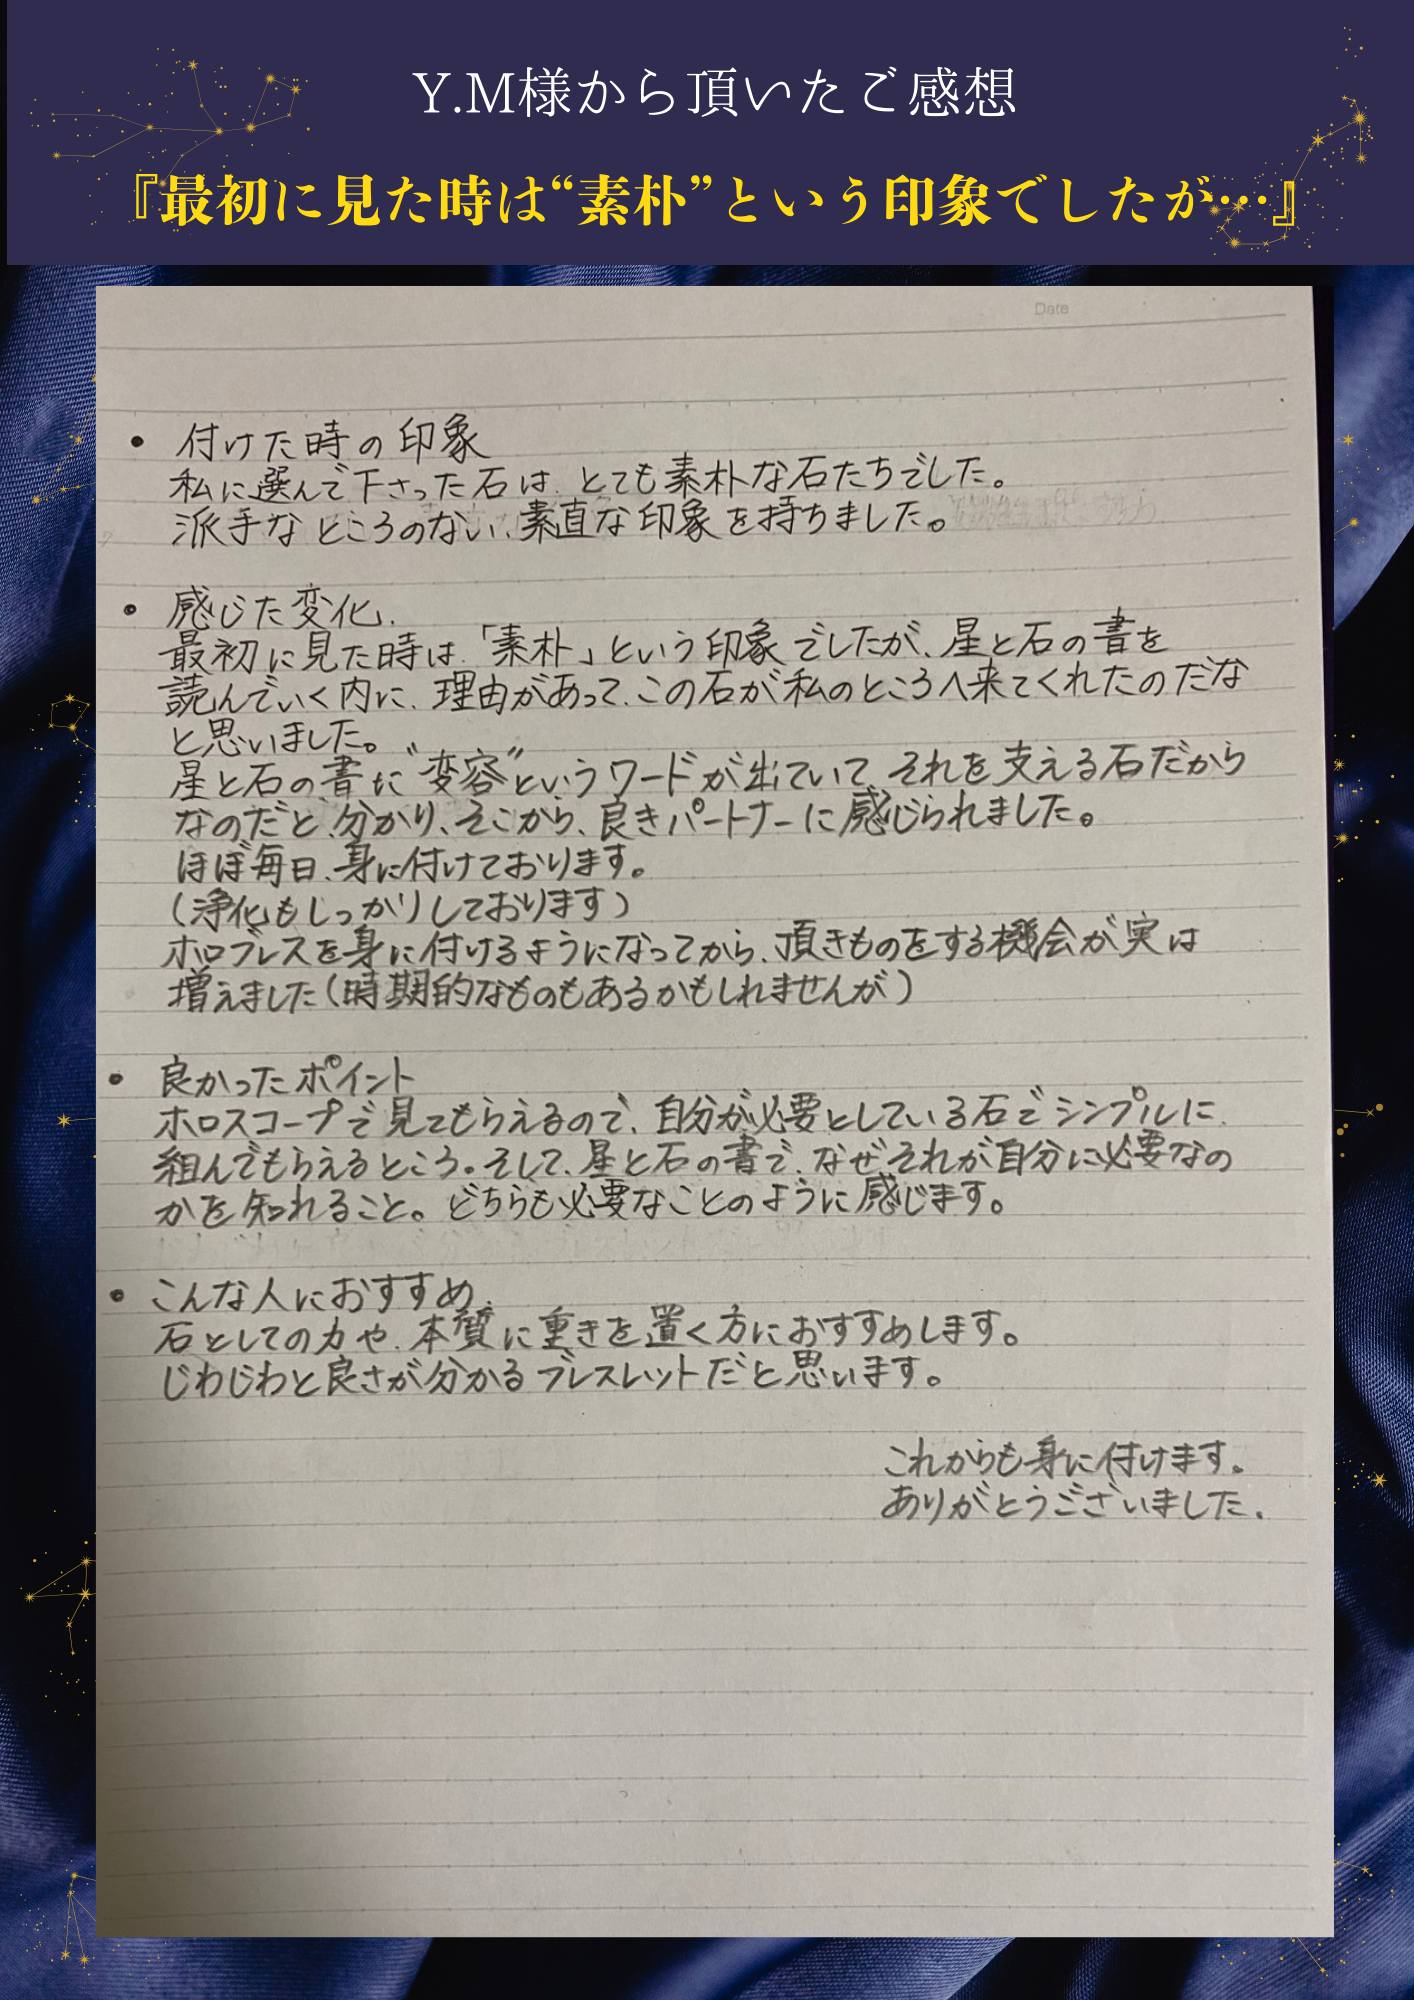 Y.M様から頂いたご感想
『最初に見た時は“素朴”という印象でしたが…』
Date
• 付けた時の印象
私に選んで下さった石は、とても素朴な石たちでした。
派手なところのない、素直な印象を持ちました。
• 感じた変化.
最初に見た時は、「素朴」という印象でしたが、星と石の書を
読んでいく内に、理由があって、この石が私のところへ来てくれたのだな
と思いました。
星と石の書に“変容”というワードが出ていて、それを支える石だから
なのだと、分かり、そこから、良きパートナーに感じられました。
ほぼ毎日、身に付けております。
（浄化もしっかりしております）
ホロブレスを身に付けるようになってから、頂きものをする機会が実は
増えました（時期的なものもあるかもしれませんが）
• 良かったポイント
ホロスコープで見てもらえるので、自分が必要としている石でシンプルに
組んでもらえるところ。そして、星と石の書で、なぜそれが自分に必要なの
かを知れること。どちらも必要なことのように感じます。
• こんな人におすすめ
石としての力や、本質に重きを置く方におすすめします。
じわじわと良さが分かるブレスレットだと思います。
これからも身に付けます。
ありがとうございました.